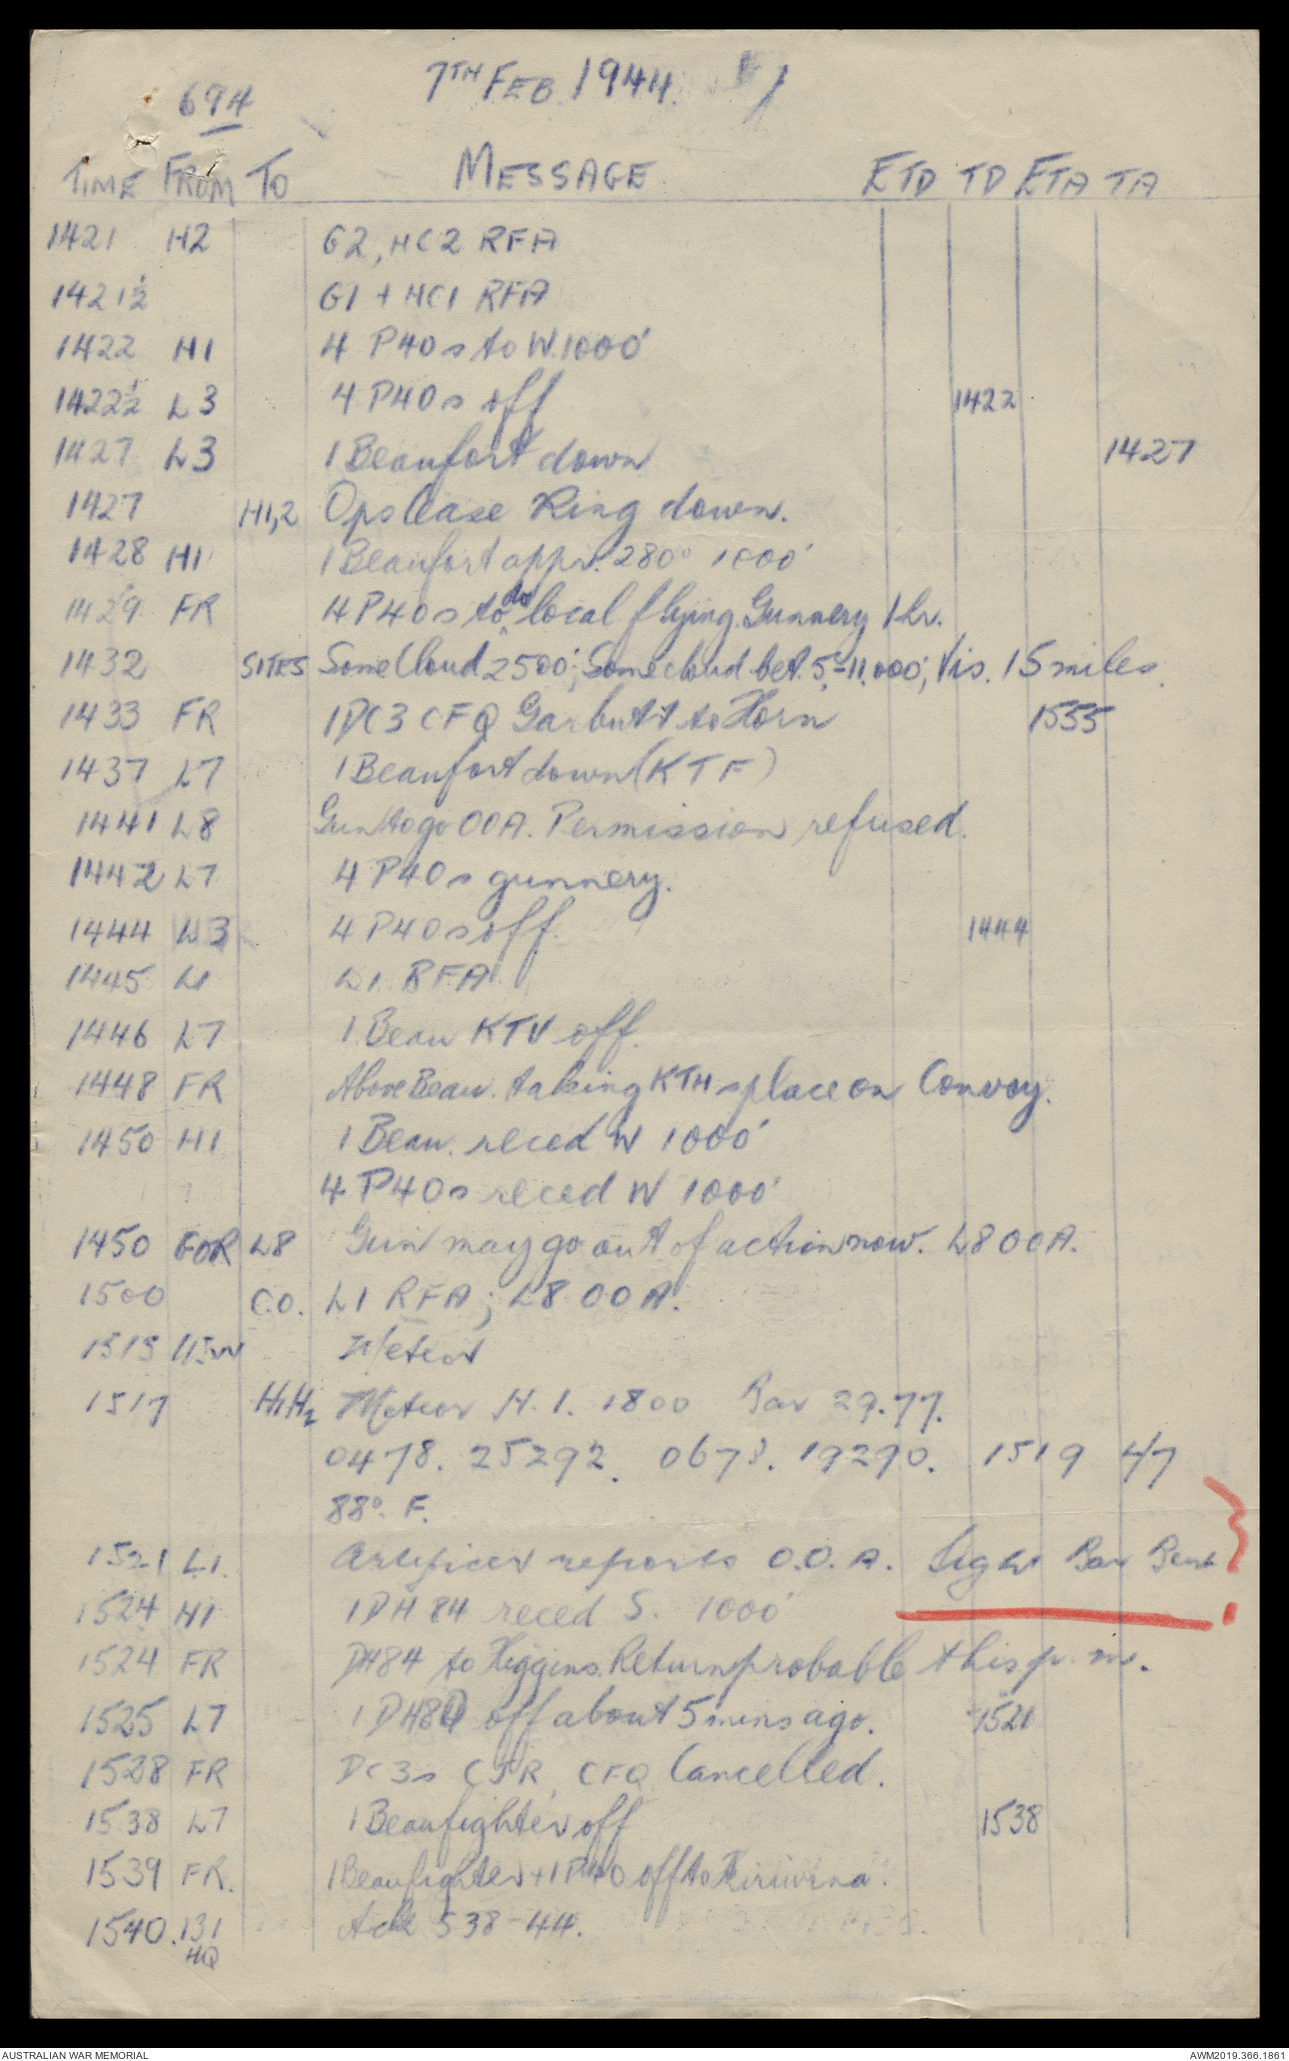 694
7TH FEB 1944.
TIME FROM TO MESSAGE ETD TD ETA TA
1421 H2 G2, HC2 RFA
1421½ G1 + HC1 RFA
1422 H1 4 P40s to W. 1000'
1422½ L3 4 P40s off 1422
1427 L3 1 Beaufort down 1427
1427 H1,2 Ops Case Ring down.
1428 H1 1 Beaufort appr. 280° 1000'
1429 FR 4 P40s to do local flying Gunnery 1 hr.
1432 SITES Some Cloud 2500'; Some cloud bet. 5-11,000', Vis. 15 miles.
1433 FR 1 DC3 CFQ Garbutt to Horn 1555
1437 L7 1 Beaufort down (KTF)
1441 L8 Gun to go OOA. Permission refused.
1442 L7 4 P40s gunnery.
1444 L3 4 P40s off. 1444
1445 L1 L1 RFA
1446 L7 1 Beau KTV off.
1448 FR Above Beau. taking KTHs place on Convoy.
1450 H1 1 Beau. reced W 1000'
4 P40s reced W 1000'
1450 GOR L8 Gun may go out of action now. L8 OOA.
1500 C.O. L1 RFA; L8 OOA.
1515 Meteor
1517 H1H2 Meteor H.1. 1800 Bar 29.77.
0478. 25292. 0678. 19290. 1519 4/7
88° F.
1521 L1. Artificer reports O.O.A. Light Bar Bent
1524 H1 1 DH84 reced S. 1000'
1524 FR DH84 to Higgins. Return probable this p.m.
1525 L7 1 DH84 off about 5 mins ago. 1521
1528 FR DC3s CJR, CFQ Cancelled.
1538 L7 1 Beaufighter off 1538
1539 FR. 1 Beaufighter + 1 P40 off to Kiriwina.
1540. 131 Ack 538-44.
HQ
AUSTRALIAN WAR MEMORIAL AWM2019.366.1861